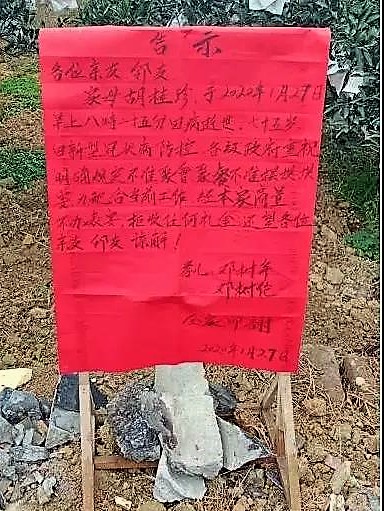 告示
各位亲友 邻友
家母胡桂珍，于2020年1月27日
早上八时一十五分因病逝世，七十五岁，
因新型冠状病防控，各级政府重视
明确规定不准聚会聚餐不准摆
为配合当前工作 经本家商量：
不办丧宴，拒收任何礼金，还望各位
亲友 邻友 谅解！
孝儿：邓树年
邓树
全家叩谢
2020年1月27日